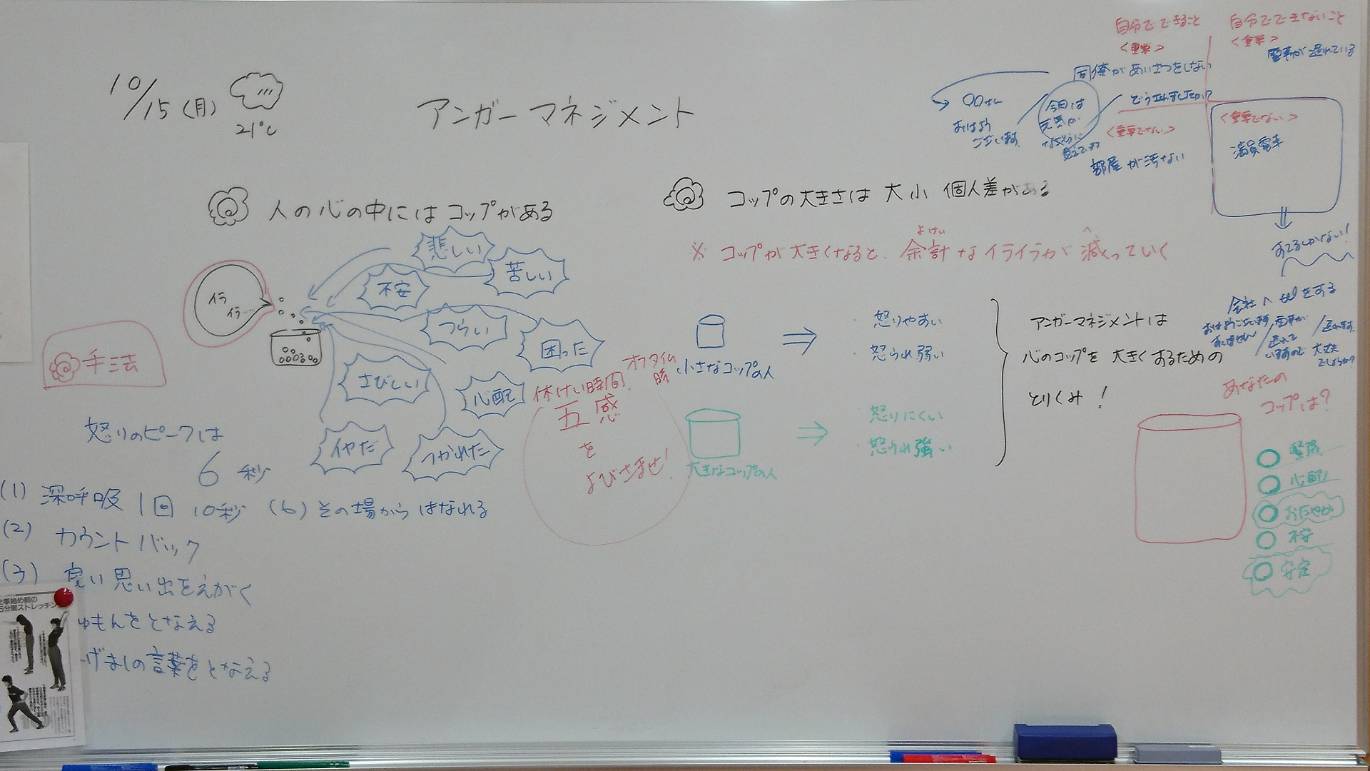 10/15(月)
21℃
アンガーマネジメント
人の心の中にはコップがある
悲しい
苦しい
不安
つらい
困った
さびしい
心配
イヤだ
つかれた
イライラ
手法
怒りのピークは
6秒
(1) 深呼吸 1回 10秒
(6) その場からはなれる
(2) カウントバック
(3) 良い思い出をえがく
ゅもんをとなえる
げましの言葉をとなえる
5分間ストレッチ
休けい時間
オフタイム時
五感
を
よびさませ!
コップの大きさは 大小 個人差がある
※ コップが大きくなると、余計なイライラが減っていく
よけい
へ
小さなコップの人
怒りやすい
怒うれ弱い
大きなコップの人
怒りにくい
怒うれ強い
アンガーマネジメントは
心のコップを大きくするための
とりくみ!
自分でできること
<重要>
同僚があいさつをしない
どうされましたか?
今日は
元気が
○○さん
おはよう
ございます
<重要でない>
部屋が汚ない
自分でできないこと
<重要>
電車が遅れている
<重要でない>
満員電車
すてるしかない!
会社へ
をする
電車が
遅れて
あなたの
コップは?
心配
おだやか
不安
安定